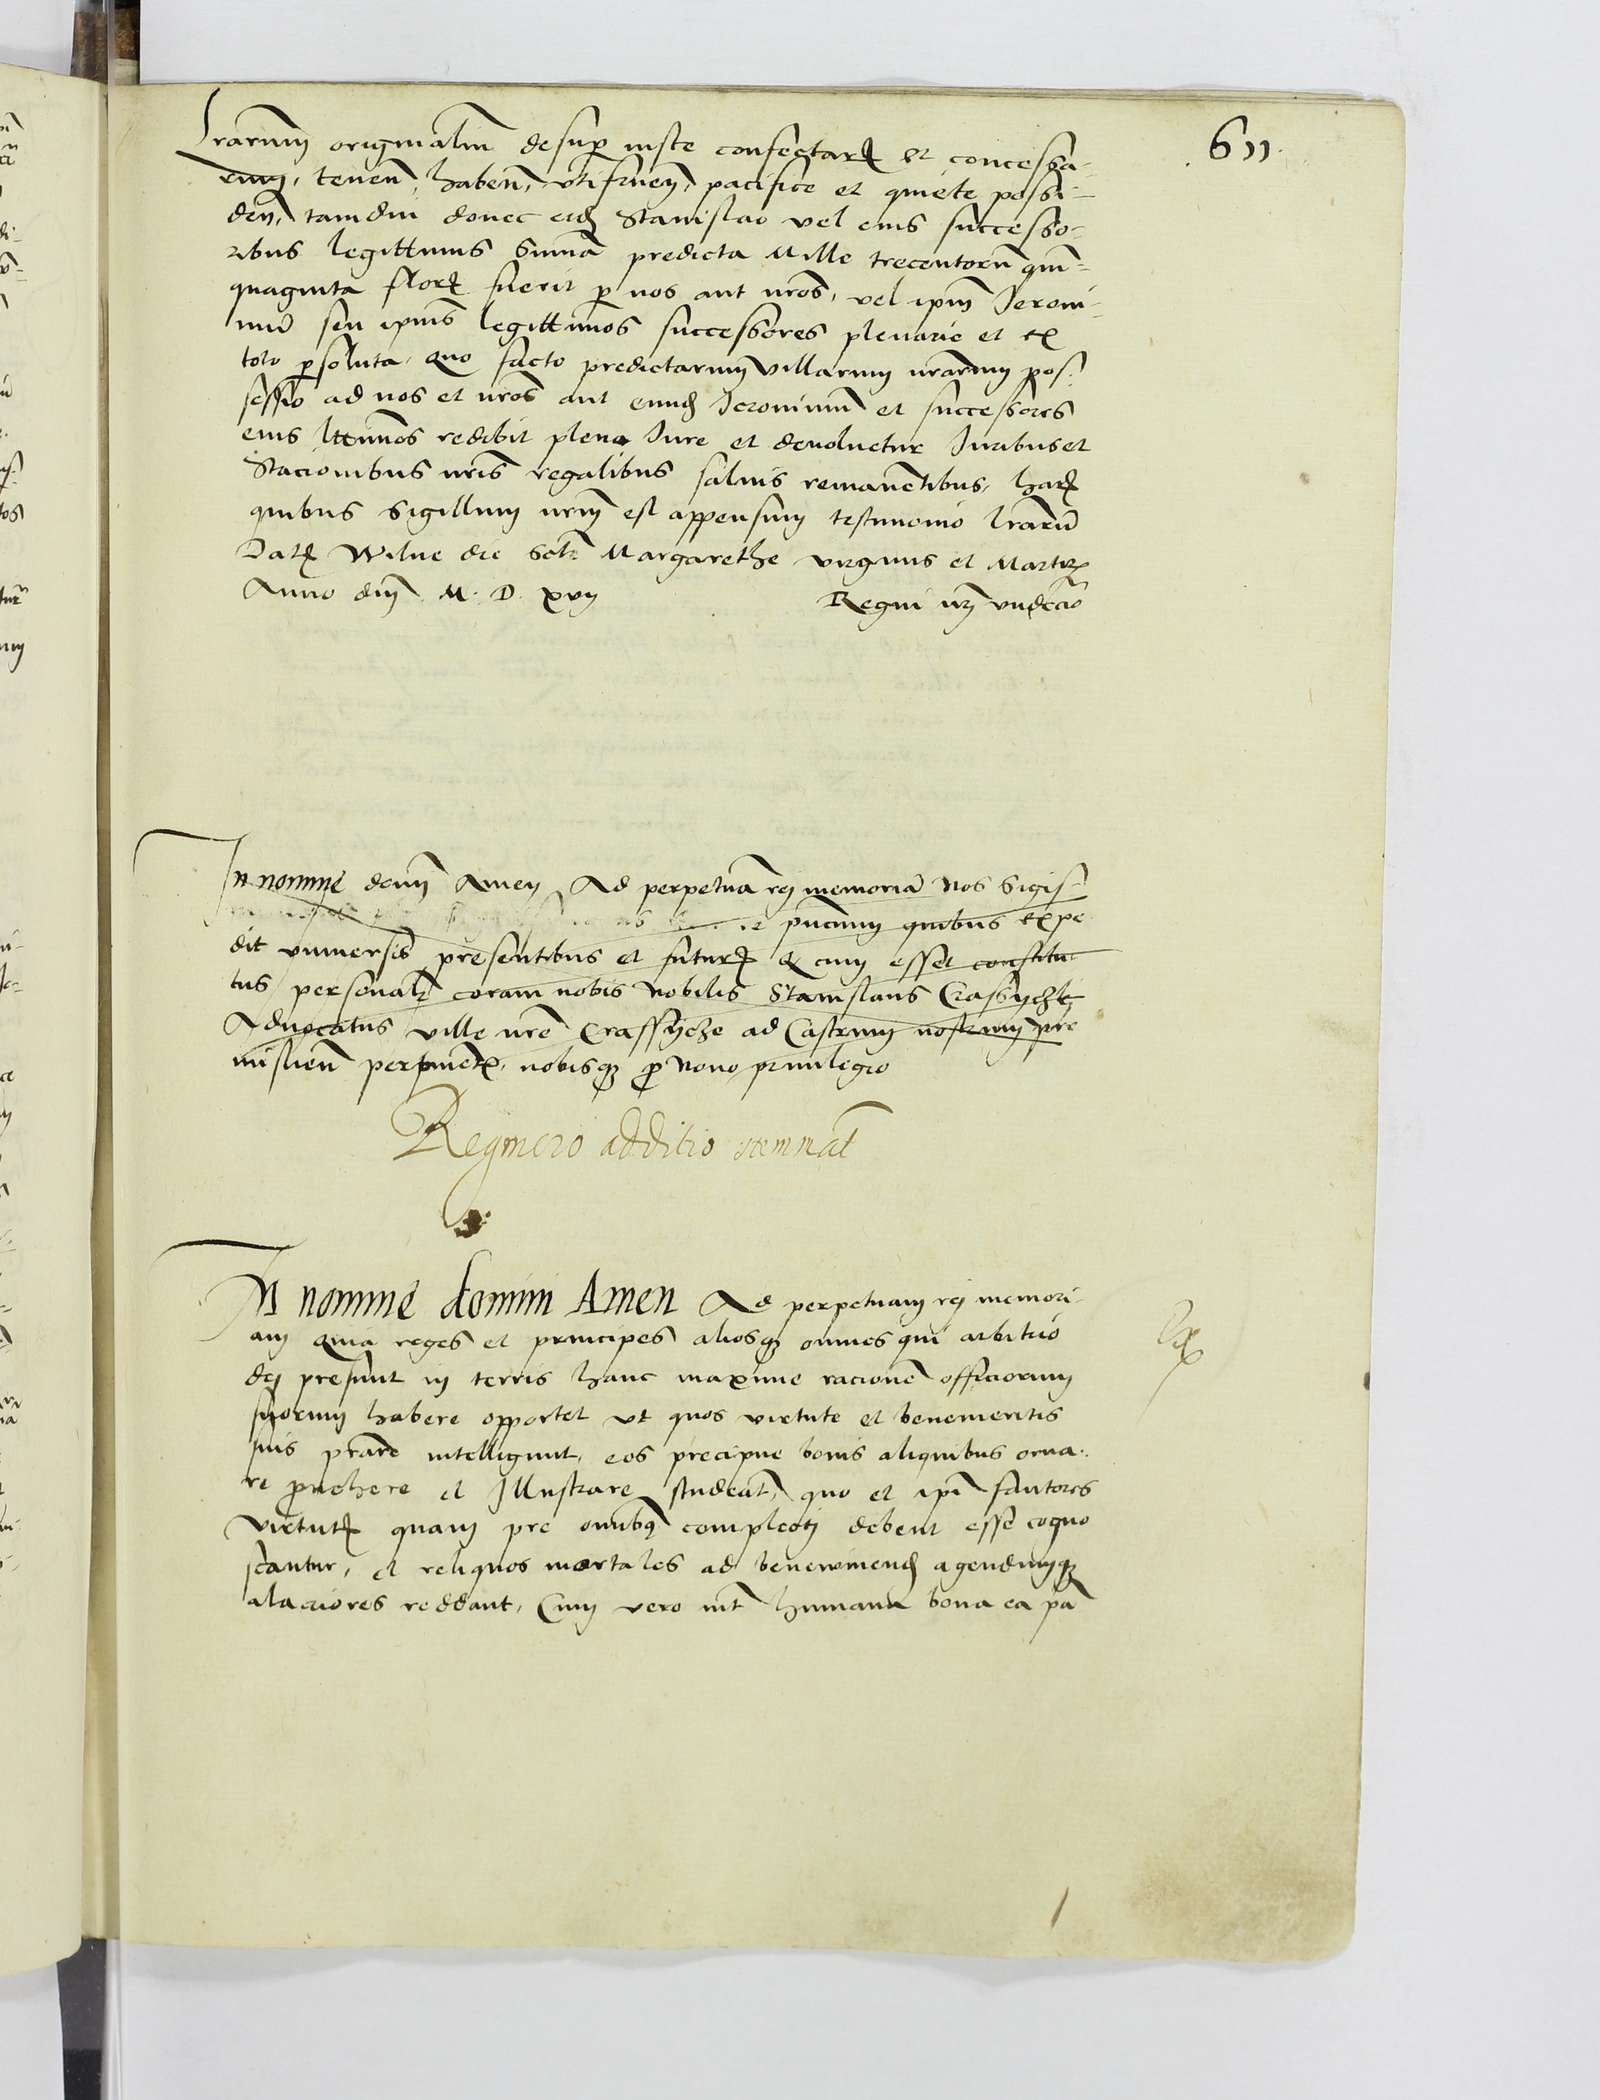 611.
lrarum originaliũ desuꝑ iuste confectarꝝ et concessa-
rum, tenen̄, haben̄, vtifruen̄, pacifice et quiete possi-
den̄, tamdiu donec eid̃ Stanislao vel eius successo-
ribus legittimis Suma predicta Mille trecentorũ quin-
quaginta florꝝ fuerit ꝑ nos aut nr̃os, vel ipm̃ Ieroni-
mũ seu ipius legittimos successores plenarie et ex
toto ꝑsoluta, Quo facto predictarum villarum nr̃arum pos-
sessio ad nos et nr̃os aut eund̃ Ieronimũ et successores
eius lttimos redibit pleno Iure et deuoluetur Iuribus et
Stacionibus nr̃is regalibus saluis remanẽtibus, harꝝ
quibus Sigillum nr̃m est appensum testimonio lr̃arũ
Datꝝ Wilne die Sctẽ Margarethe virginis et Martirꝭ
Anno dnĩ M. D. xvij Regni nr̃i vndecĩo
In nomine domĩ Amen Ad perpetuã rej memoriã Nos Sigis-
pñcium quibus expe
dit vniuersis presentibus et futurꝭ Qͣ cum esset constitu-
tus personalr̃ coram nobis Nobilis Stanislaus Crassyczky
Aduocatus ville nr̃e Crassycze ad Castrum nostrum pre
mislien̄ pertinetꝭ, nobisqꝫ ꝓ Nouo priuilegio
Regmero additio stemnat̃
In nomine domini Amen Ad perpetuam rej memori-
am Quia reges et principes aliosqꝫ omnes qui arbitrio
dej presunt in terris hanc maxime racionẽ officiorum
suorum habere opportet vt quos virtute et benemeritis
suis prãre intelligunt, eos precipue bonis aliquibus orna-
re ꝓuehere et Illustrare studeãt, quo et ipi fautores
virtutꝭ quam pre omibꝫ complecti debent esse cogno
scantur, et reliquos mortales ad benemerend̃ agendumqꝫ
alacriores reddant, Cum vero int̃ humana bona ea pã